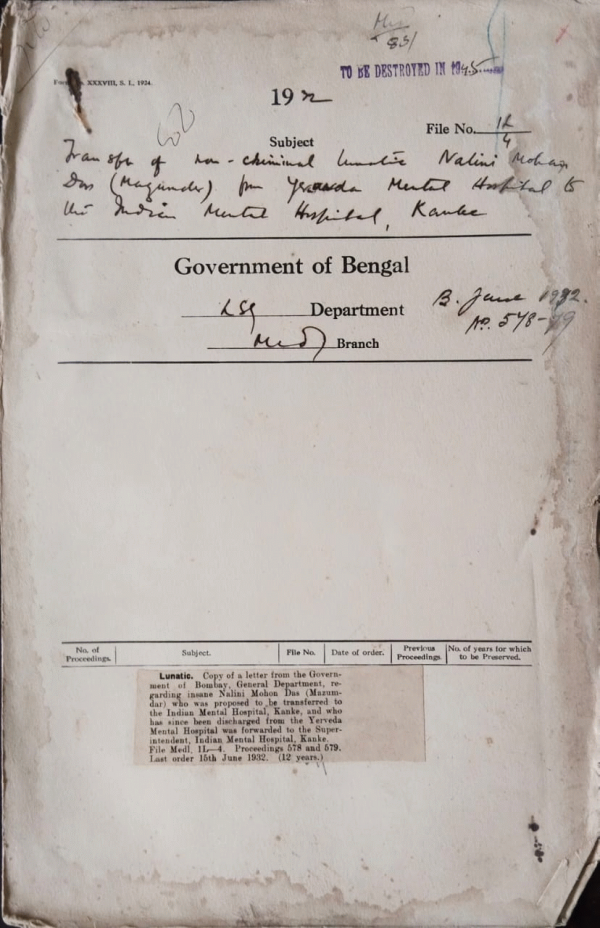 831
Form No. XXXVIII, S. I., 1924.
TO BE DESTROYED IN 1945
1932
File No. 1L/4
Subject
Transfer of non-criminal lunatic Nalini Mohan
Das (Mazumder) from Yeravda Mental Hospital to
the Indian Mental Hospital, Kanke
Government of Bengal
LSG Department
B. June 1932.
No. 578-79
Medl Branch
No. of Proceedings. Subject. File No. Date of order. Previous Proceedings. No. of years for which to be Preserved.
Lunatic. Copy of a letter from the Govern-
ment of Bombay, General Department, re-
garding insane Nalini Mohon Das (Mazum-
dar) who was proposed to be transferred to
the Indian Mental Hospital, Kanke, and who
has since been discharged from the Yerveda
Mental Hospital was forwarded to the Super-
intendent, Indian Mental Hospital, Kanke.
File Medl. 1L—4. Proceedings 578 and 579.
Last order 15th June 1932. (12 years.)